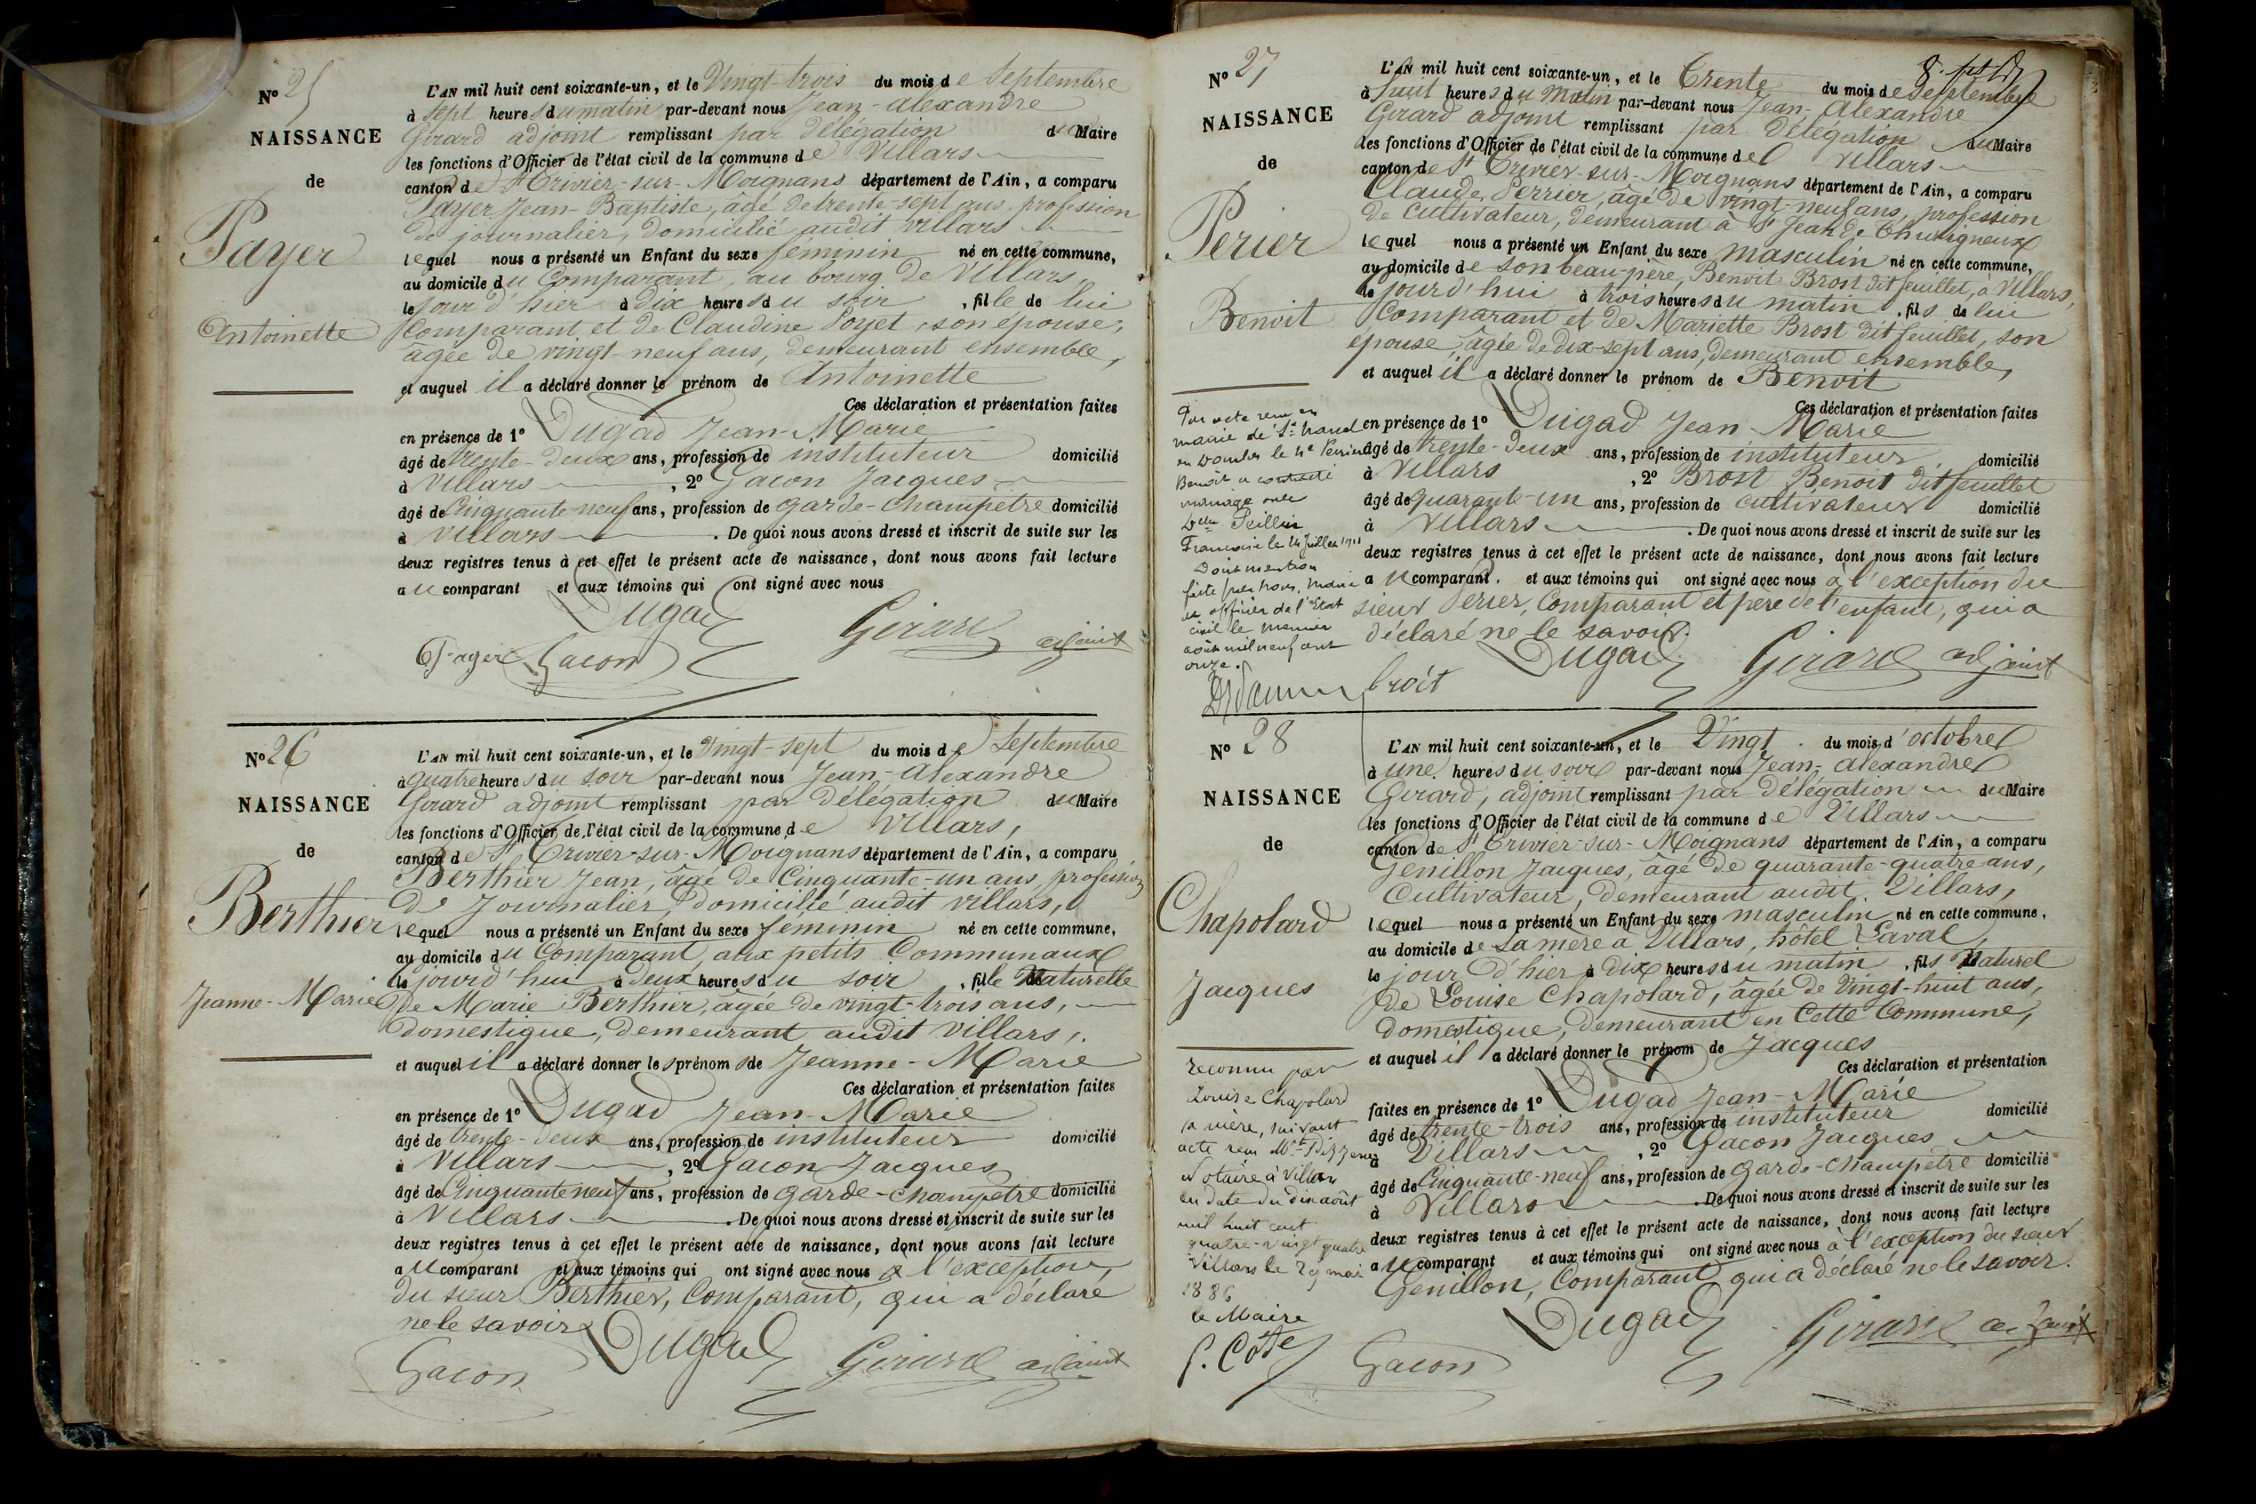 N° 25
NAISSANCE
de
Payer
Antoinette
L'AN mil huit cent soixante-un, et le Vingt-trois du mois de Septembre
à sept heures du matin par-devant nous Jean-Alexandre
Girard adjoint remplissant par délégation du Maire
les fonctions d'Officier de l'état civil de la commune de Villars
canton de St Trivier-sur-Moignans département de l'Ain, a comparu
Payer Jean-Baptiste, âgé de trente-sept ans, profession
de journalier, domicilié audit Villars
lequel nous a présenté un Enfant du sexe féminin né en cette commune,
au domicile du Comparant, au bourg de Villars,
le jour d'hier à dix heures du soir, fille de lui
Comparant et de Claudine Poyet, son épouse,
âgée de vingt-neuf ans, demeurant ensemble,
et auquel il a déclaré donner le prénom de Antoinette
Ces déclaration et présentation faites
en présence de 1° Dugad Jean-Marie
âgé de trente-deux ans, profession de instituteur domicilié
à Villars, 2° Gacon Jacques
âgé de Cinquante-neuf ans, profession de garde-champêtre domicilié
à Villars. De quoi nous avons dressé et inscrit de suite sur les
deux registres tenus à cet effet le présent acte de naissance, dont nous avons fait lecture
au comparant et aux témoins qui ont signé avec nous
Dugad Girard adjoint
Gacon
N° 26
NAISSANCE
de
Berthier
Jeanne-Marie
L'AN mil huit cent soixante-un, et le Vingt-sept du mois de Septembre
à quatre heures du soir par-devant nous Jean-Alexandre
Girard adjoint remplissant par délégation du Maire
les fonctions d'Officier de l'état civil de la commune de Villars,
canton de St Trivier-sur-Moignans département de l'Ain, a comparu
Berthier Jean, âgé de Cinquante-un ans, profession
de Journalier, domicilié audit Villars,
lequel nous a présenté un Enfant du sexe féminin né en cette commune,
au domicile du Comparant, aux petits Communaux
le jourd'hui à deux heures du soir, fille Naturelle
de Marie Berthier, âgée de vingt-trois ans,
domestique, demeurant audit Villars,
et auquel il a déclaré donner les prénoms de Jeanne-Marie
Ces déclaration et présentation faites
en présence de 1° Dugad Jean-Marie
âgé de trente-deux ans, profession de instituteur domicilié
à Villars, 2° Gacon Jacques
âgé de Cinquante neuf ans, profession de garde-champêtre domicilié
à Villars. De quoi nous avons dressé et inscrit de suite sur les
deux registres tenus à cet effet le présent acte de naissance, dont nous avons fait lecture
au comparant et aux témoins qui ont signé avec nous à l'exception
du sieur Berthier, Comparant, qui a déclaré
ne le savoir.
Dugad
Gacon Girard adjoint
N° 27
NAISSANCE
de
Perier
Benoit
L'AN mil huit cent soixante-un, et le Trente du mois de Septembre
à huit heures du Matin par-devant nous Jean-Alexandre
Girard adjoint remplissant par Délégation du Maire
les fonctions d'Officier de l'état civil de la commune de Villars
canton de St Trivier-sur-Moignans département de l'Ain, a comparu
Claude Perrier, âgé de vingt-neuf ans, profession
de cultivateur, demeurant à St Jean de Thurigneux
lequel nous a présenté un Enfant du sexe masculin né en cette commune,
au domicile de son beau-père, Benoit Brost dit feuillet, à Villars,
le jourd'hui à trois heures du matin, fils de lui
Comparant et de Mariette Brost dit feuillet, son
épouse, âgée de dix-sept ans, demeurant ensemble,
et auquel il a déclaré donner le prénom de Benoit
Ces déclaration et présentation faites
en présence de 1° Dugad Jean-Marie
âgé de trente-deux ans, profession de instituteur domicilié
à Villars, 2° Brost Benoit dit feuillet
âgé de quarante-un ans, profession de cultivateur domicilié
à Villars. De quoi nous avons dressé et inscrit de suite sur les
deux registres tenus à cet effet le présent acte de naissance, dont nous avons fait lecture
au comparant. et aux témoins qui ont signé avec nous à l'exception du
sieur Perier, Comparant et père de l'enfant, qui a
déclaré ne le savoir.
Dugad Girard adjoint
broit
Par acte reçu en
mairie de
en Dombes le
Benoit a contracté
mariage avec
Delle Peillin
Françoise le 14 Juillet 1911
Dont mention
faite par nous, Maire
et officier de l'Etat
civil le premier
août mil neuf cent
onze.
N° 28
NAISSANCE
de
Chapolard
Jacques
L'AN mil huit cent soixante-un, et le Vingt du mois d'octobre
à une heures du soir par-devant nous Jean-Alexandre
Girard, adjoint remplissant par délégation du Maire
les fonctions d'Officier de l'état civil de la commune de Villars
canton de St Trivier-sur-Moignans département de l'Ain, a comparu
Genillon Jacques, âgé de quarante-quatre ans,
Cultivateur, demeurant audit Villars,
lequel nous a présenté un Enfant du sexe masculin né en cette commune,
au domicile de sa mère à Villars, hôtel Laval,
le jour d'hier à dix heures du matin, fils Naturel
de Louise Chapolard, âgée de Vingt-huit ans,
domestique, demeurant en Cette Commune,
et auquel il a déclaré donner le prénom de Jacques
Ces déclaration et présentation
faites en présence de 1° Dugad Jean-Marie
âgé de trente-trois ans, profession de instituteur domicilié
à Villars, 2° Gacon Jacques
âgé de Cinquante-neuf ans, profession de garde-champêtre domicilié
à Villars. De quoi nous avons dressé et inscrit de suite sur les
deux registres tenus à cet effet le présent acte de naissance, dont nous avons fait lecture
au comparant et aux témoins qui ont signé avec nous à l'exception du sieur
Genillon, Comparant, qui a déclaré ne le savoir.
Dugad Girard adjoint
Gacon
reconnu par
Louise Chapolard
sa mère, suivant
acte reçu Me
Notaire à Villars
en date du dix août
mil huit cent
quatre-vingt quatre
Villars le 29 mai
1886
le Maire
P. Côte